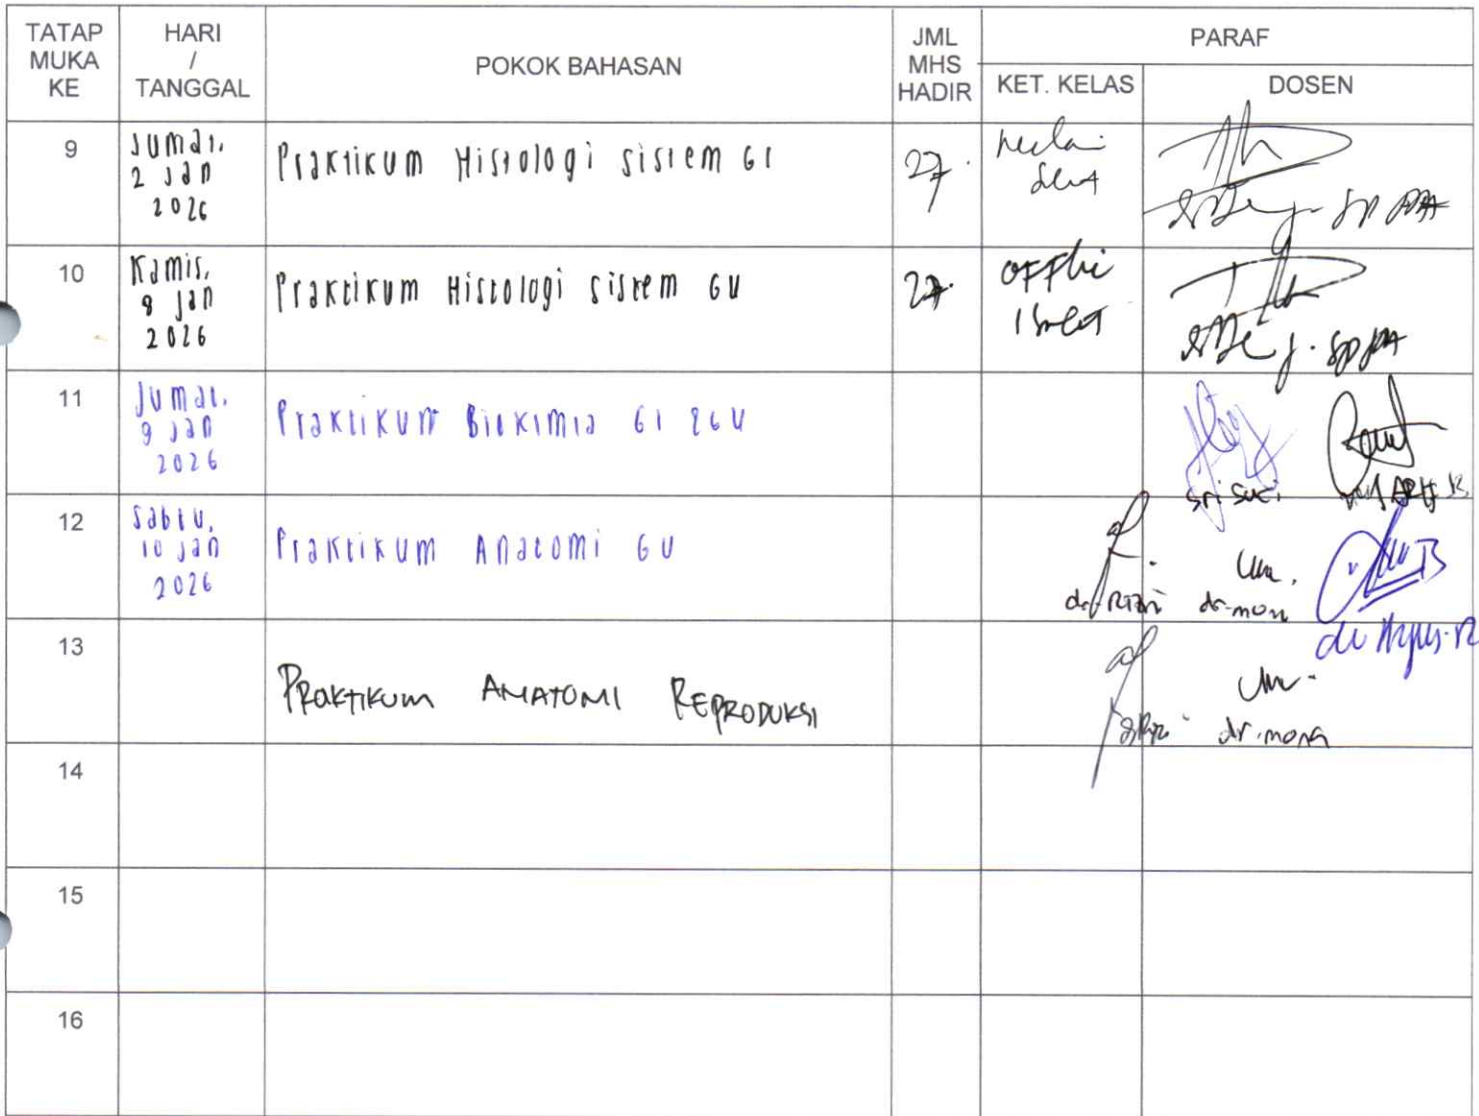 TATAP MUKA KE
HARI / TANGGAL
POKOK BAHASAN
JML MHS HADIR
PARAF
KET. KELAS
DOSEN
9
Jumat,
2 Jan
2026
Praktikum Histologi sistem GI
27
10
Kamis,
8 Jan
2026
Praktikum Histologi sistem GU
27
11
Jumat,
9 Jan
2026
Praktikum Biokimia GI & GU
Sri Suci
12
Sabtu,
10 Jan
2026
Praktikum Anatomi GU
dr. mona
13
PRAKTIKUM ANATOMI REPRODUKSI
dr. mona
14
15
16